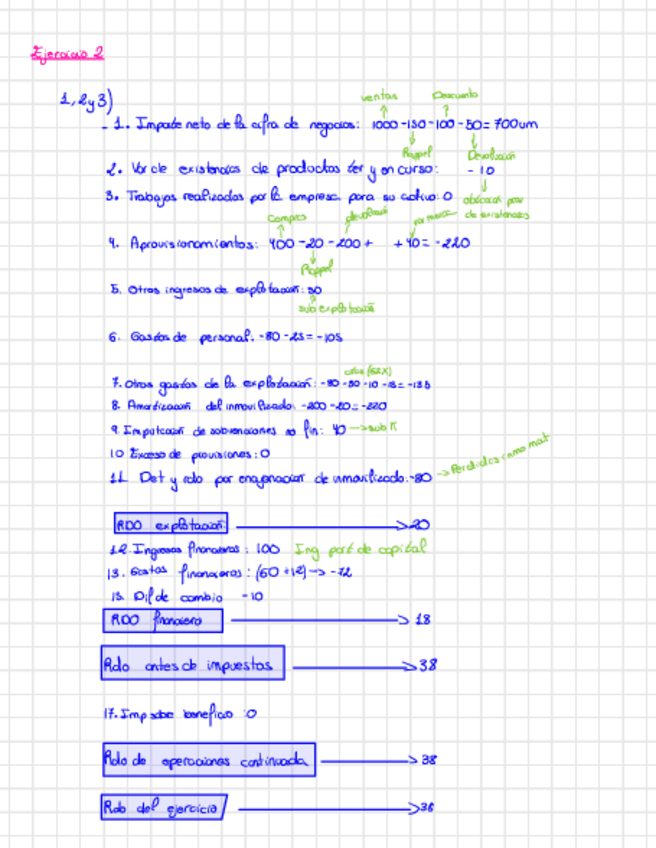 Ejercicio 2
1,2y3)
ventas Descuento
- 1. Importe neto de la cifra de negocios: 1000-150-100-50=700um
Rappel Devolución
2. Var de existencias de productos ter y en curso: -10
3. Trabajos realizados por la empresa para su activo: 0
de existencias
Compras devolución
4. Aprovisionamientos: 400-20-200+ +40=-220
Rappel
5. Otros ingresos de explotación: 50
sub explotación
6. Gastos de personal: -80-25=-105
7. Otros gastos de la explotación: -80-50-10-15=-155
8. Amortización del inmovilizado: -200-20=-220
9. Imputación de subvenciones no fin: 40 → sub K
10 Exceso de provisiones: 0
11 Det y rdo por enajenación de inmovilizado: -80 → Perdidas inmo mat
RDO explotación → 20
12. Ingresos financieros: 100 Ing part de capital
13. Gastos financieros: (60+12) → -72
15. Dif de cambio -10
RDO financiero → 18
Rdo antes de impuestos → 38
17. Imp sobre beneficio: 0
Rdo de operaciones continuada → 38
Rdo del ejercicio → 38